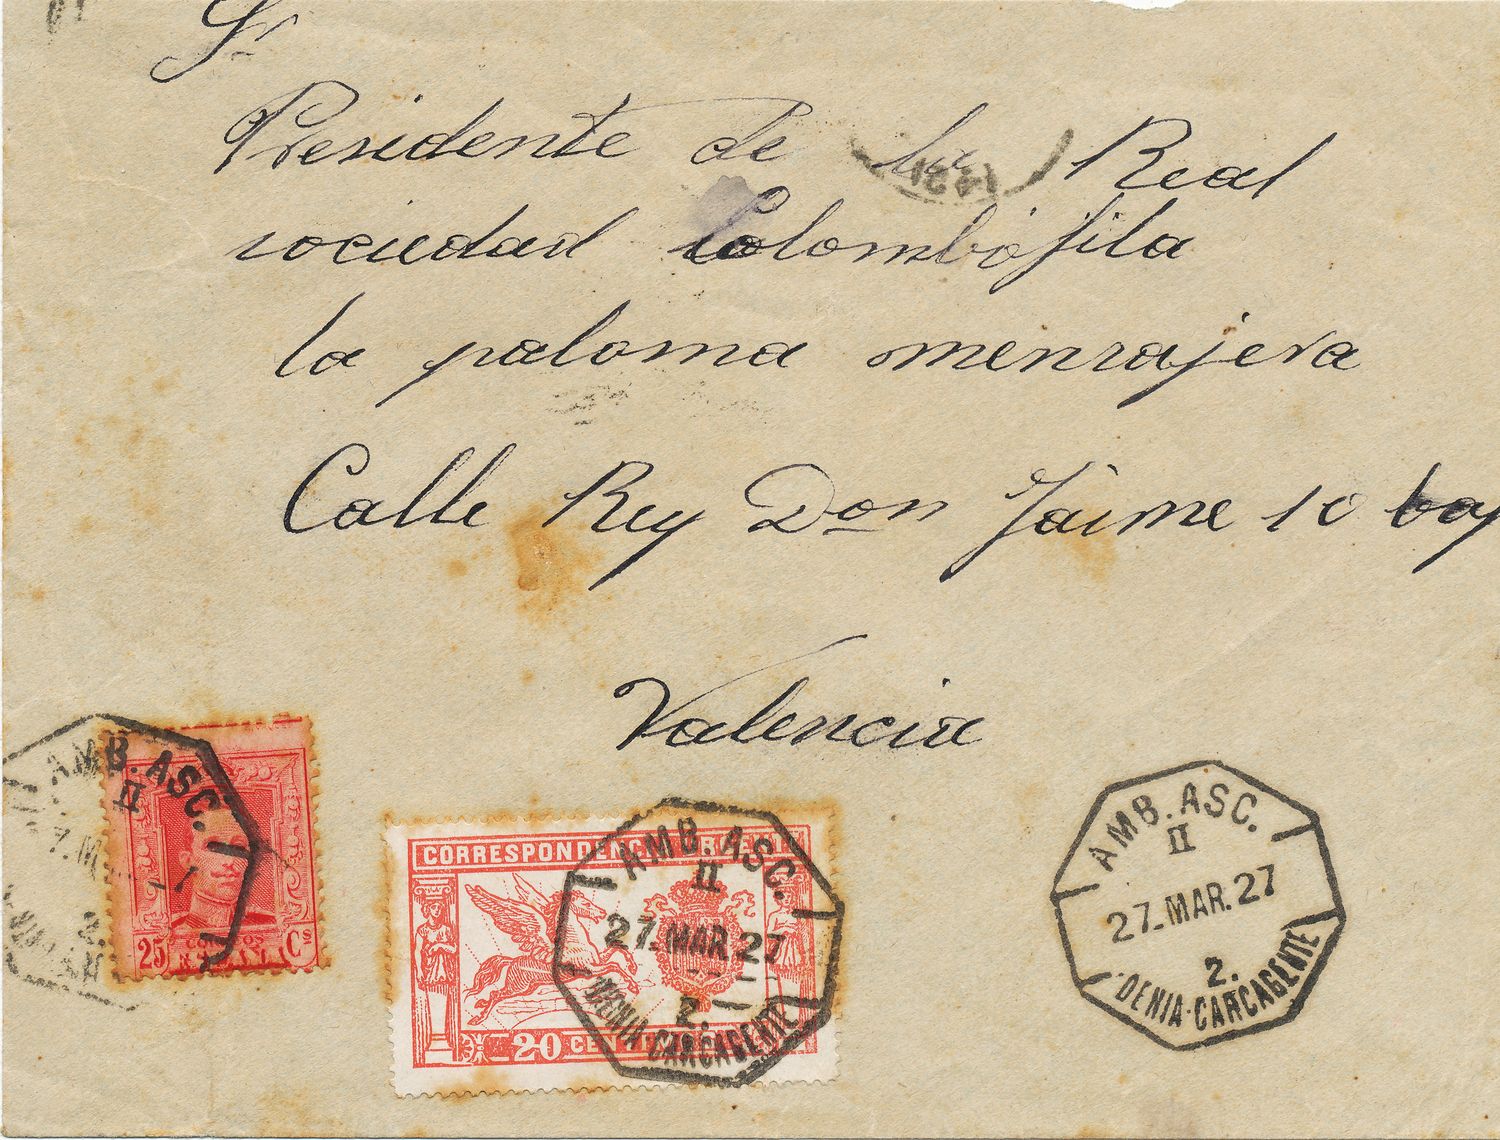 Sr
Presidente de la Real
sociedad Colombófila
la paloma mensajera
Calle Rey Don Jaime 10 baj
Valencia
AMB. ASC.
II
2.
25 Cs
CORREOS
CORRESPONDENCIA URGENTE
20 CENTIMOS
AMB. ASC.
II
27. MAR. 27
2.
DENIA-CARCAGENTE
AMB. ASC.
II
27. MAR. 27
2.
DENIA-CARCAGENTE